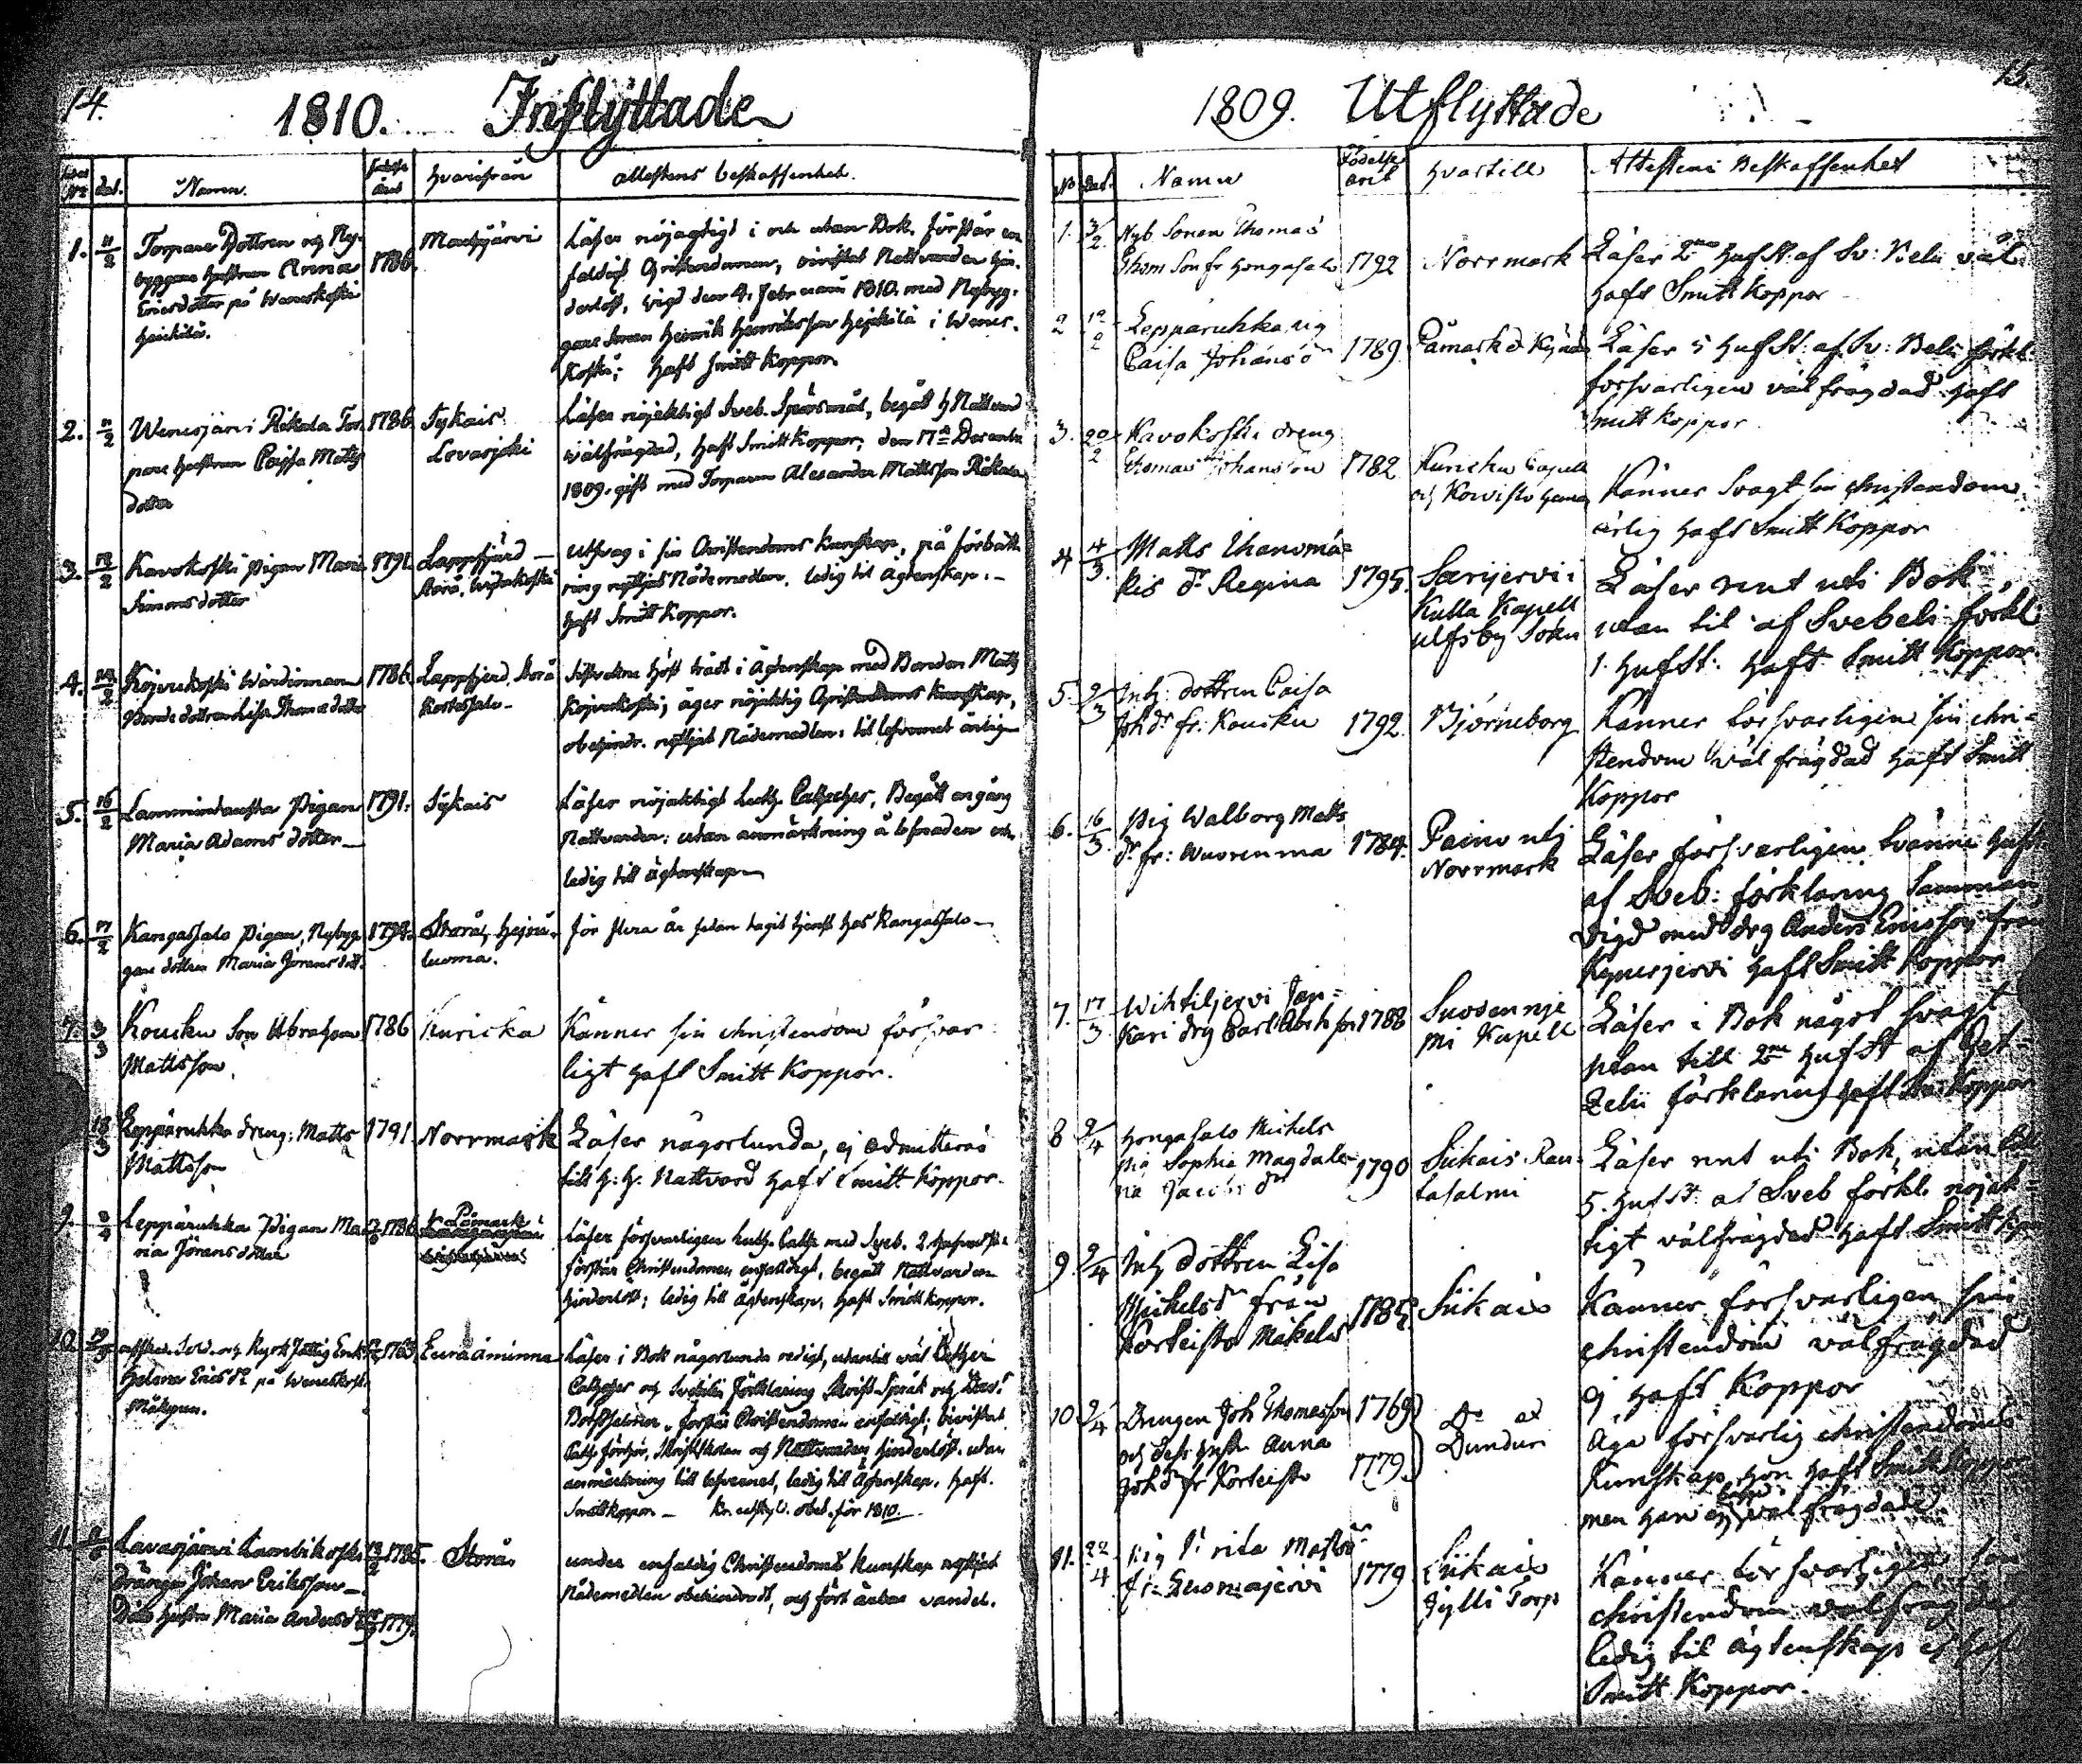 14.
1810. Inflyttade
N:o dat. Namn. födelse året hvarifrån attestens beskaffenhet.
1. 11/2 Torpare Dottren och Ny-
byggare hustrun Anna
Ericsdotter på Weneskoski
Heickilä.
1786.
Läser nöjagtigt i och utan Bok. förstår en
faldigt Christendomen, bivistat Nattvarden hin-
derlöst, vigd den 4. Februarii 1810. med Nybyg-
gare Sonen Henrik Henriksson Heickilä i Wenes-
koski; haft Smitt Koppor.
2. 11/2 Wenesjärvi Rikala Tor-
pare hustrun Caissa Matts
dotter
1786
Sykais
Lovasjoki
Läser nöjaktigt Sveb. Spörsmål, begått H Nattvard
wälfrägdad, haft Smitt Koppor; den 17de December
1809. gift med Torparen Alexander Mattsson Rikala
3. 12/2 Kavokoski pigan Maria
Simonsdotter
1791
Lappfjärd
Storå
utsvag i sin Christendoms kunskap, på förbätt-
ring nyttjat Nådemedlen. ledig til Ägtenskap. -
haft Smitt Koppor.
4. Koivukoski Wärdinnan
Bonde dottren Lisa Thomædotter
1786
Lappfjerd, Storå
Kortessalo -
höst trädt i Ägtenskap med Bonden Matts
Koivukoski; äger nöjaktig Christendoms Kunskap,
obehindr. nyttjat Nådemedlen: til lefvernet ärlig
5. 16/2 Lammintausta Pigan
Maria Adams dotter
1791.
Sykais
Läser nöjaktigt Luth. Catheches, Begått en gång
Nattvarden: utan anmärkning å lefnaden och
ledig till ägtenskap
6. 17/2 Kangassalo Pigan, Nybyg-
gare dottren Maria Jöransdott.
Storå, Hejnä-
luoma.
för flera år sedan tagit tjenst hos Kangassalo
7. 3/3 Koucku Son Abraham
Mattsson
1786
Kuricka
Känner sin christendom försvar-
ligt haft Smitt Koppor.
18/3 Leppäruhka dreng: Matts
Mattsson
1791
Norrmark
Läser någorlunda, ej admitteras
till H: H. Nattvard haft Smitt Koppor.
9. 2/4 Leppäruhka Pigan Ma-
ria Jöransdotter
1786
Påmark
Läser försvarligen Luth. Cath. med Sveb. 2.
förstår Christendomen enfalldigt, begått Nattvarden
hinderlöst; ledig till Ägtenskap, haft Smittkoppor.
10.
Helena Ericsdr på Weneskoski
1763
Euraåminne
Läser i Bok någorlunda redigt, utantil väl Luthers
Catheches och Svebelii förklaring Skrift Språk och Dav:s
Botpsalmer, förstår Christendomen enfaldigt; bivistat
Cath. förhör, Skriftskolan och Nattvarden hinderlöst. utan
anmärkning till lefvernet, ledig till Ägtenskap. haft
Smittkoppor - för 1810.
11. Lavasjärvi Lambikoski
Drängen Johan Ericsson
Dess hustru Maria Andersdr
1785.
1779.
Storå
under enfaldig Christendoms Kunskap nyttjat
Nådemedlen obehindradt, och fört ärbar vandel.
15.
1809. Utflyttade
No Dat. Namn Födelse året hvartill Attestens Beskaffenhet
1. 3/2 Nyb Sonen Thomas
Thom Son fr Hongasalo
1792
Norrmark
Läser 2ne Huf St: af Sv: Belii väl
haft Smitt Koppor
2 12/2 Leppäruhka pig
Caisa Johansdr
1789
Påmark
Läser 5 Huf St: af Sv: Belii förkl
försvarligen väl frägdad haft
Smitt koppor
3. 20/2 Kavokoski dreng
Thomas Johansson
1782
Kuricka Capell
och Koivisto hemn
Känner Svagt sin christendom
ärlig haft Smitt Koppor
4 4/3 Matts Thanomä-
kis dr Regina
1795.
Sarijervi i
Kulla Kapell
Ulfsby Sokn
Läser rent uti Bok,
utan til af Svebeli förkl
1. Huf St: haft Smitt Koppor
5. 9/3 Inh: dottren Caisa
Joh dr fr. Koucku
1792.
Björneborg
Känner försvarligen sin chri-
stendom väl frägdad haft Smitt
Koppor
6. 16/3 Pig Walborg Matts
dr fr: Wuorenma
1784.
Norrmark
Läser försvarligen tvänne Huf St
af Sveb: förklaring Samman
vigd med drg Anders Ericsson från
Kynesjervi haft Smitt Koppor
7. 17/3 Wihtiljervi Jan-
Kari drg Carl Abrh son
1788
Suodennje
mi Kapell
Läser i Bok något svagt
utan till 2ne Huf St af Get-
zelii förklaring haft Smi Koppor
8 9/4 Hongasalo Michels
pig Sophia Magdale-
na Jacobs dr
1790
Siikais Ran-
tasalmi
Läser rent uti Bok, utan till
5. Huf St: af Sveb förkl. nöjak-
tigt välfrägdad haft Smitt kop
9. 9/4 Inh dottren Lisa
Michelsdr från
Korteisto Mäkelä
1785.
Siikais
Känner försvarligen sin
christendom välfrägdad
ej haft Koppor
10 9/4 Drengen Joh Thomasson
och dess hustr Anna
Joh dr fr Korteisto
1769
1779
Do
Äga försvarlig christendoms
Kunskap, hon haft Smitt Koppor
men han ej, välfrägdade
11. 22/4 Pig
fr: Luomajervi
1779
Siikais
Jylli Torp
Känner försvarligen sin
christendom välfrägdad
ledig til Ägtenskap ej haft
Smitt Koppor.